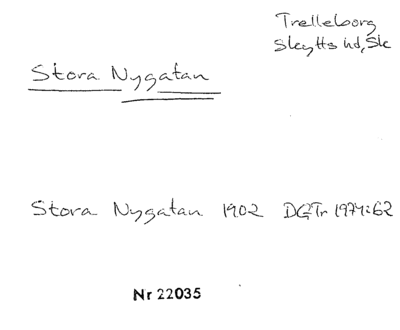 Trelleborg
Skytts hd, Sk
Stora Nygatan
Stora Nygatan 1902 DGTr 1974:62
Nr 22035